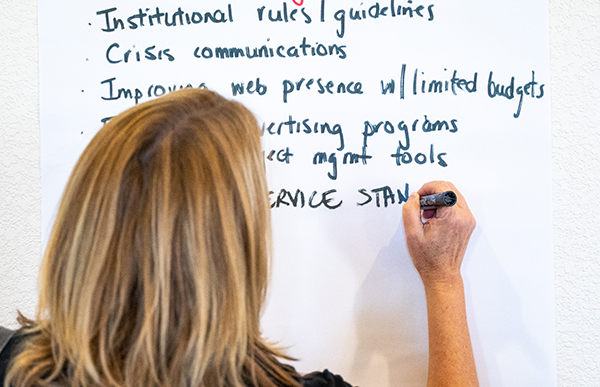 · Institutional rules/guidelines
· Crisis communications
· Improving web presence w/limited budgets
· programs
mgmt tools
STAN